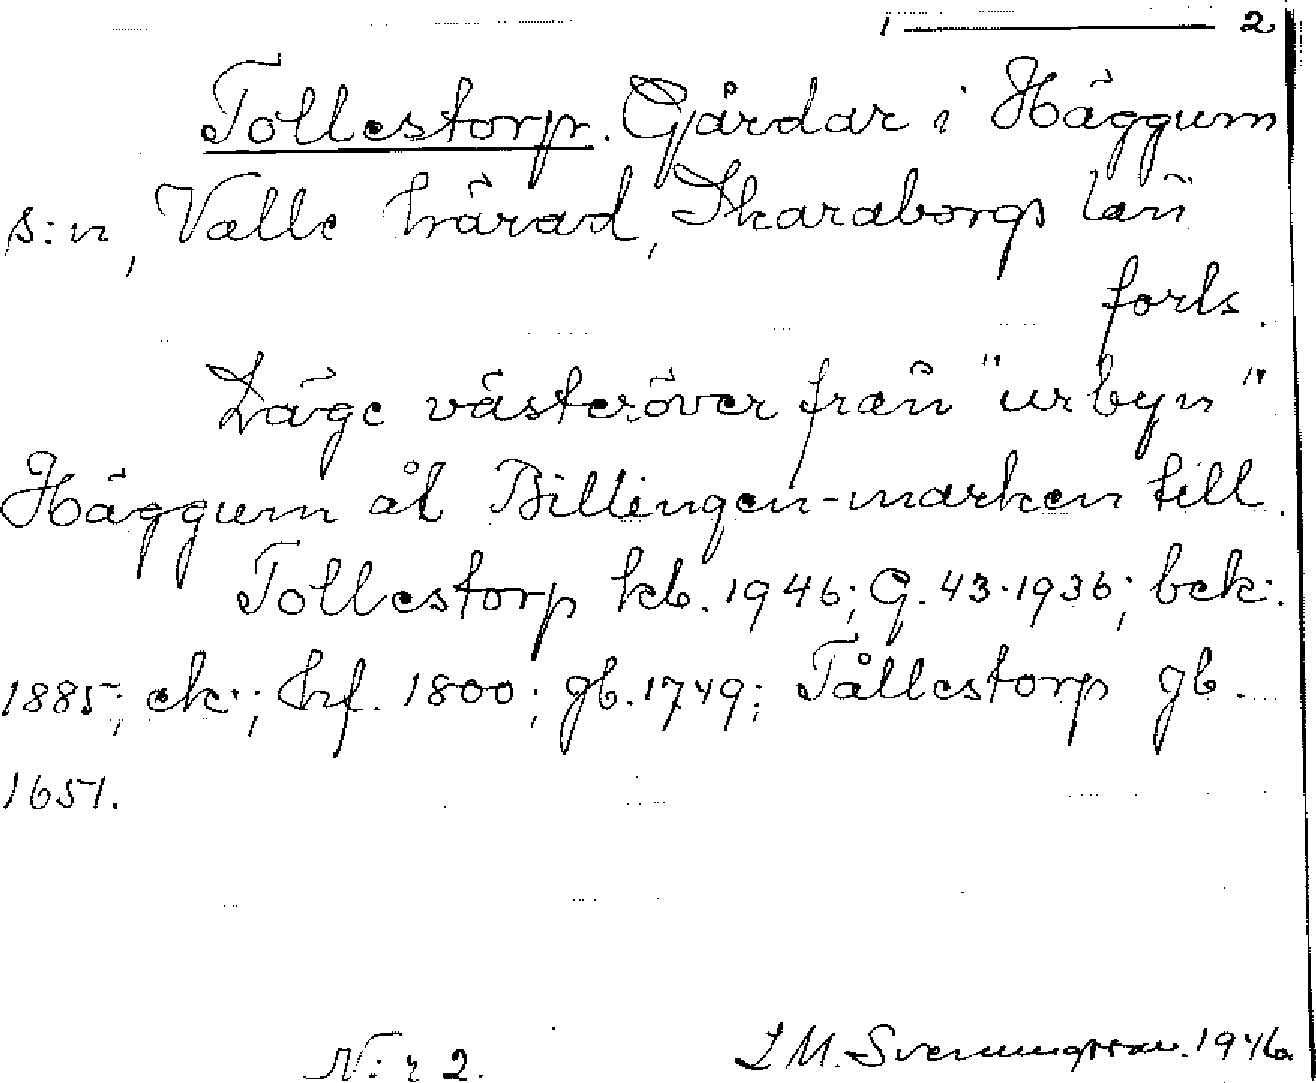 1 ——— 2
Tollestorp. Gårdar i Häggum
s:n, Valle härad, Skaraborgs län
forts.
Läge västeröver från "urbyn"
Häggum åt Billingen-marken till.
Tollestorp kb. 1946; G. 43. 1936; bek:
1885; ek:; hf. 1800; gb. 1749; Tållestorp gb.
1651.
N:r 2. I M. Svenungsson. 1946